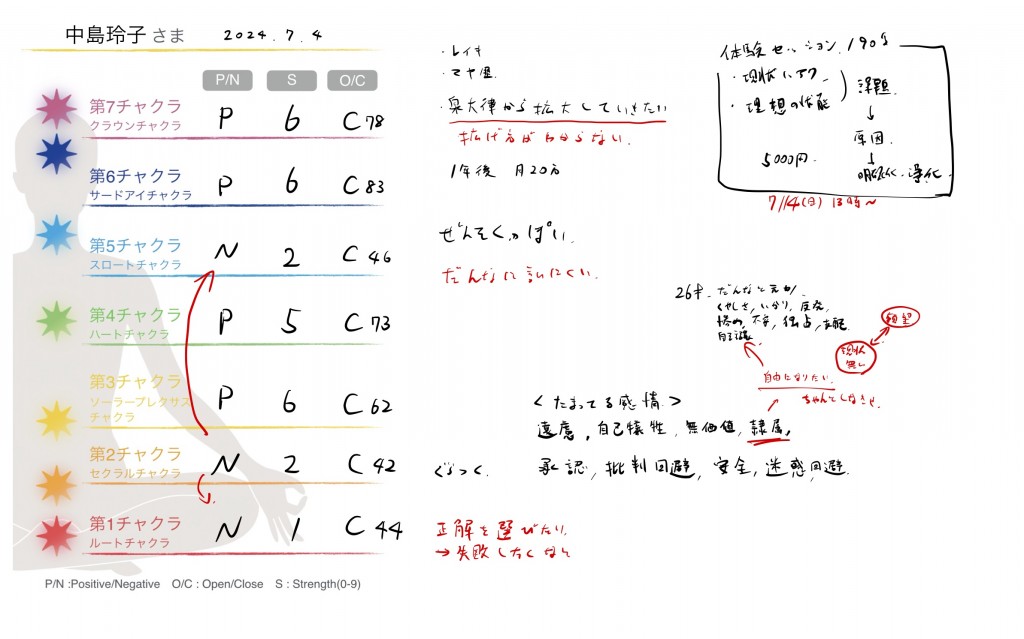 中島玲子 さま 2024.7.4
P/N S O/C
第7チャクラ
クラウンチャクラ
P 6 C 78
第6チャクラ
サードアイチャクラ
P 6 C 83
第5チャクラ
スロートチャクラ
N 2 C 46
第4チャクラ
ハートチャクラ
P 5 C 73
第3チャクラ
ソーラープレクサス
チャクラ
P 6 C 62
第2チャクラ
セクラルチャクラ
N 2 C 42
第1チャクラ
ルートチャクラ
N 1 C 44
P/N :Positive/Negative O/C : Open/Close S : Strength(0-9)
・レイキ
・マヤ暦
・奥大律から拡大していきたい
拡げ方がわからない.
1年後 月20万
ぜんそくっぽい.
だんなに言いにくい.
体験セッション. 190分
・現状
・理想の状態
課題
↓
原因.
↓
明確化・浄化
5000円.
7/14(日) 13時〜
26才. だんなと
くやしさ, いかり,
不安, 独占, 支配
願望
現状
無い
自由になりたい.
ちゃんとしなきゃ.
<たまってる感情>
遠慮, 自己犠牲, 無価値, 隷属,
承認, 批判回避, 安全, 迷惑回避.
正解を選びたい.
→失敗したくない